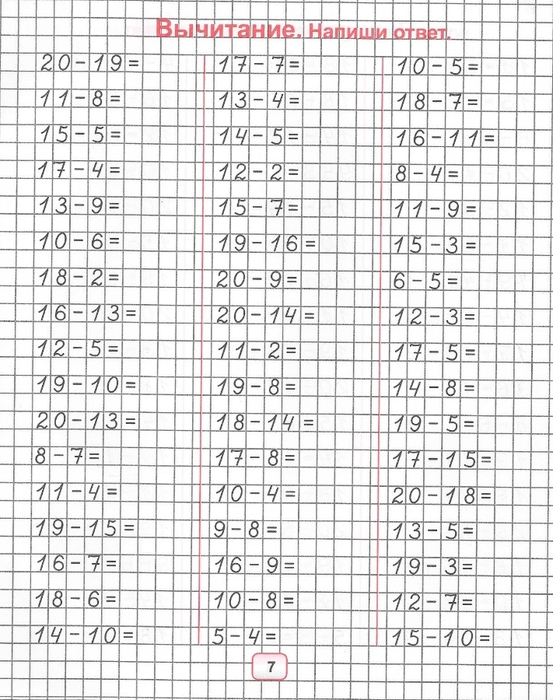 Вычитание. Напиши ответ.
20-19=
11-8=
15-5=
17-4=
13-9=
10-6=
18-2=
16-13=
12-5=
19-10=
20-13=
8-7=
11-4=
19-15=
16-7=
18-6=
14-10=
17-7=
13-4=
14-5=
12-2=
15-7=
19-16=
20-9=
20-14=
11-2=
19-8=
18-14=
17-8=
10-4=
9-8=
16-9=
10-8=
5-4=
10-5=
18-7=
16-11=
8-4=
11-9=
15-3=
6-5=
12-3=
17-5=
14-8=
19-5=
17-15=
20-18=
13-5=
19-3=
12-7=
15-10=
7